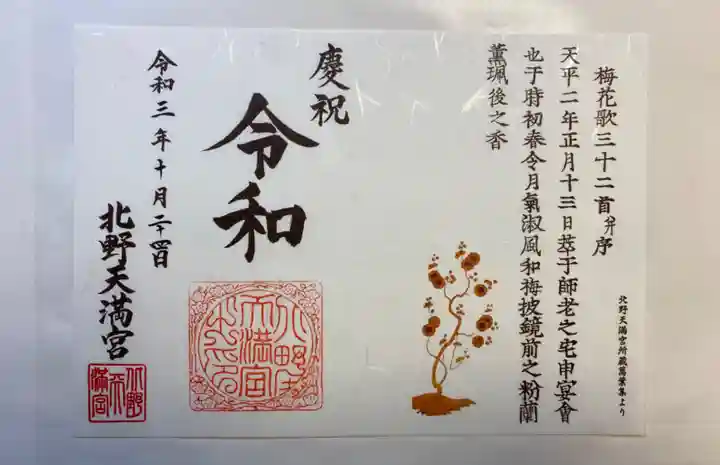 梅花歌三十二首并序
天平二年正月十三日萃于師老之宅申宴會
也于時初春令月氣淑風和梅披鏡前之粉蘭
薫珮後之香
北野天満宮所蔵萬葉集より
慶祝
令和
令和三年十月二十四日
北野天満宮
北野天満宮